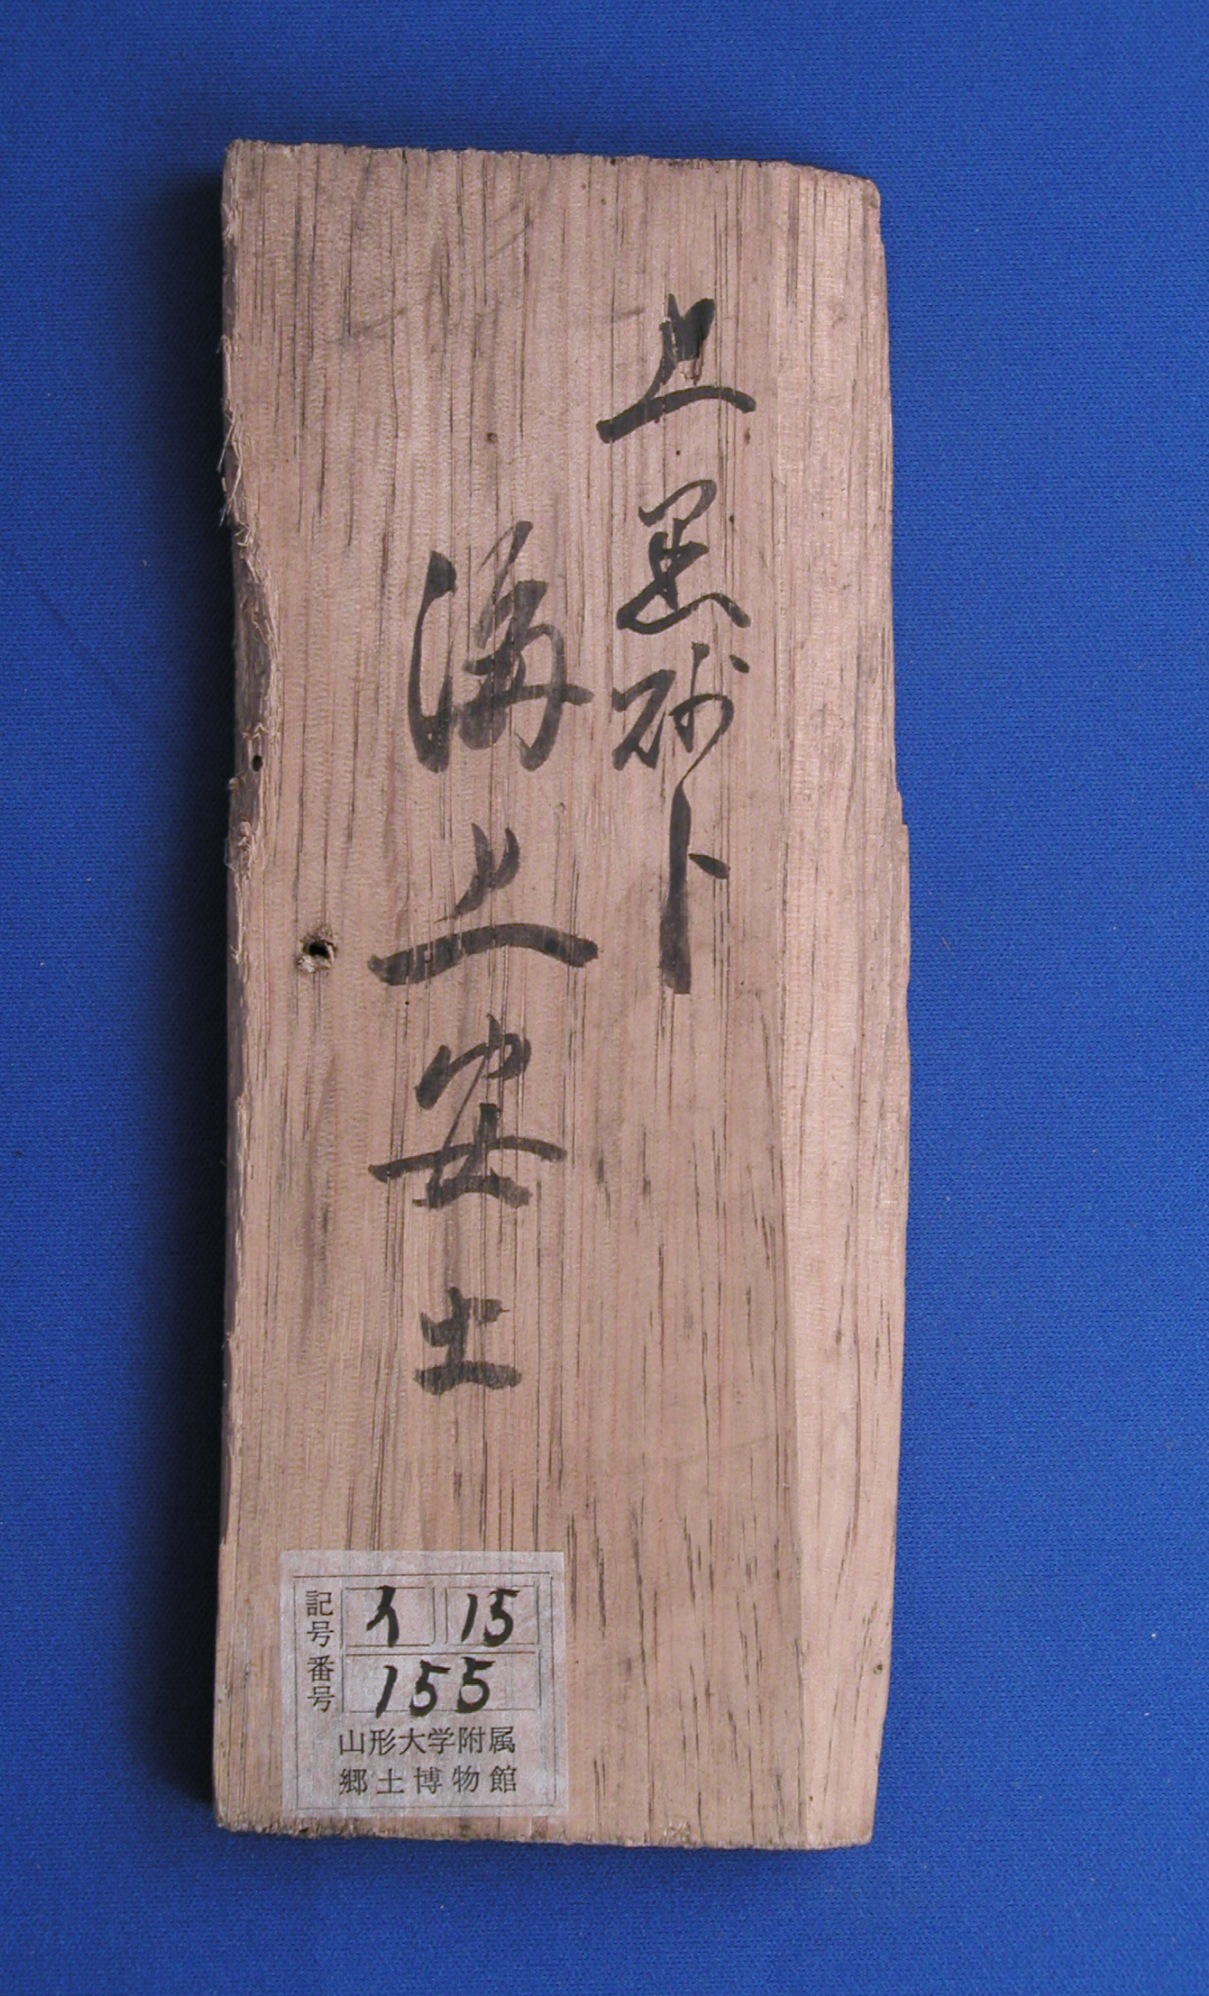 上黒砂ト
海上安土
記号 イ 15
番号 155
山形大学附属
郷土博物館